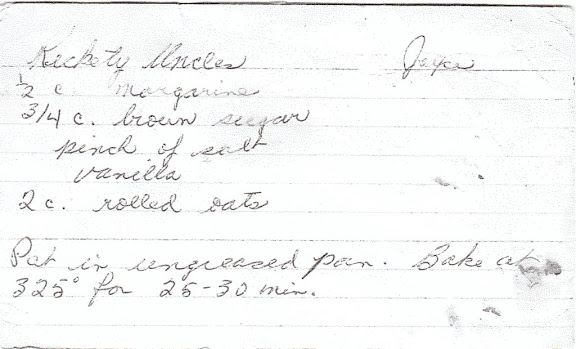 Rickety Uncles Joyce
1/2 c. margarine
3/4 c. brown sugar
pinch of salt
vanilla
2 c. rolled oats
Pat in ungreased pan. Bake at
325° for 25-30 min.